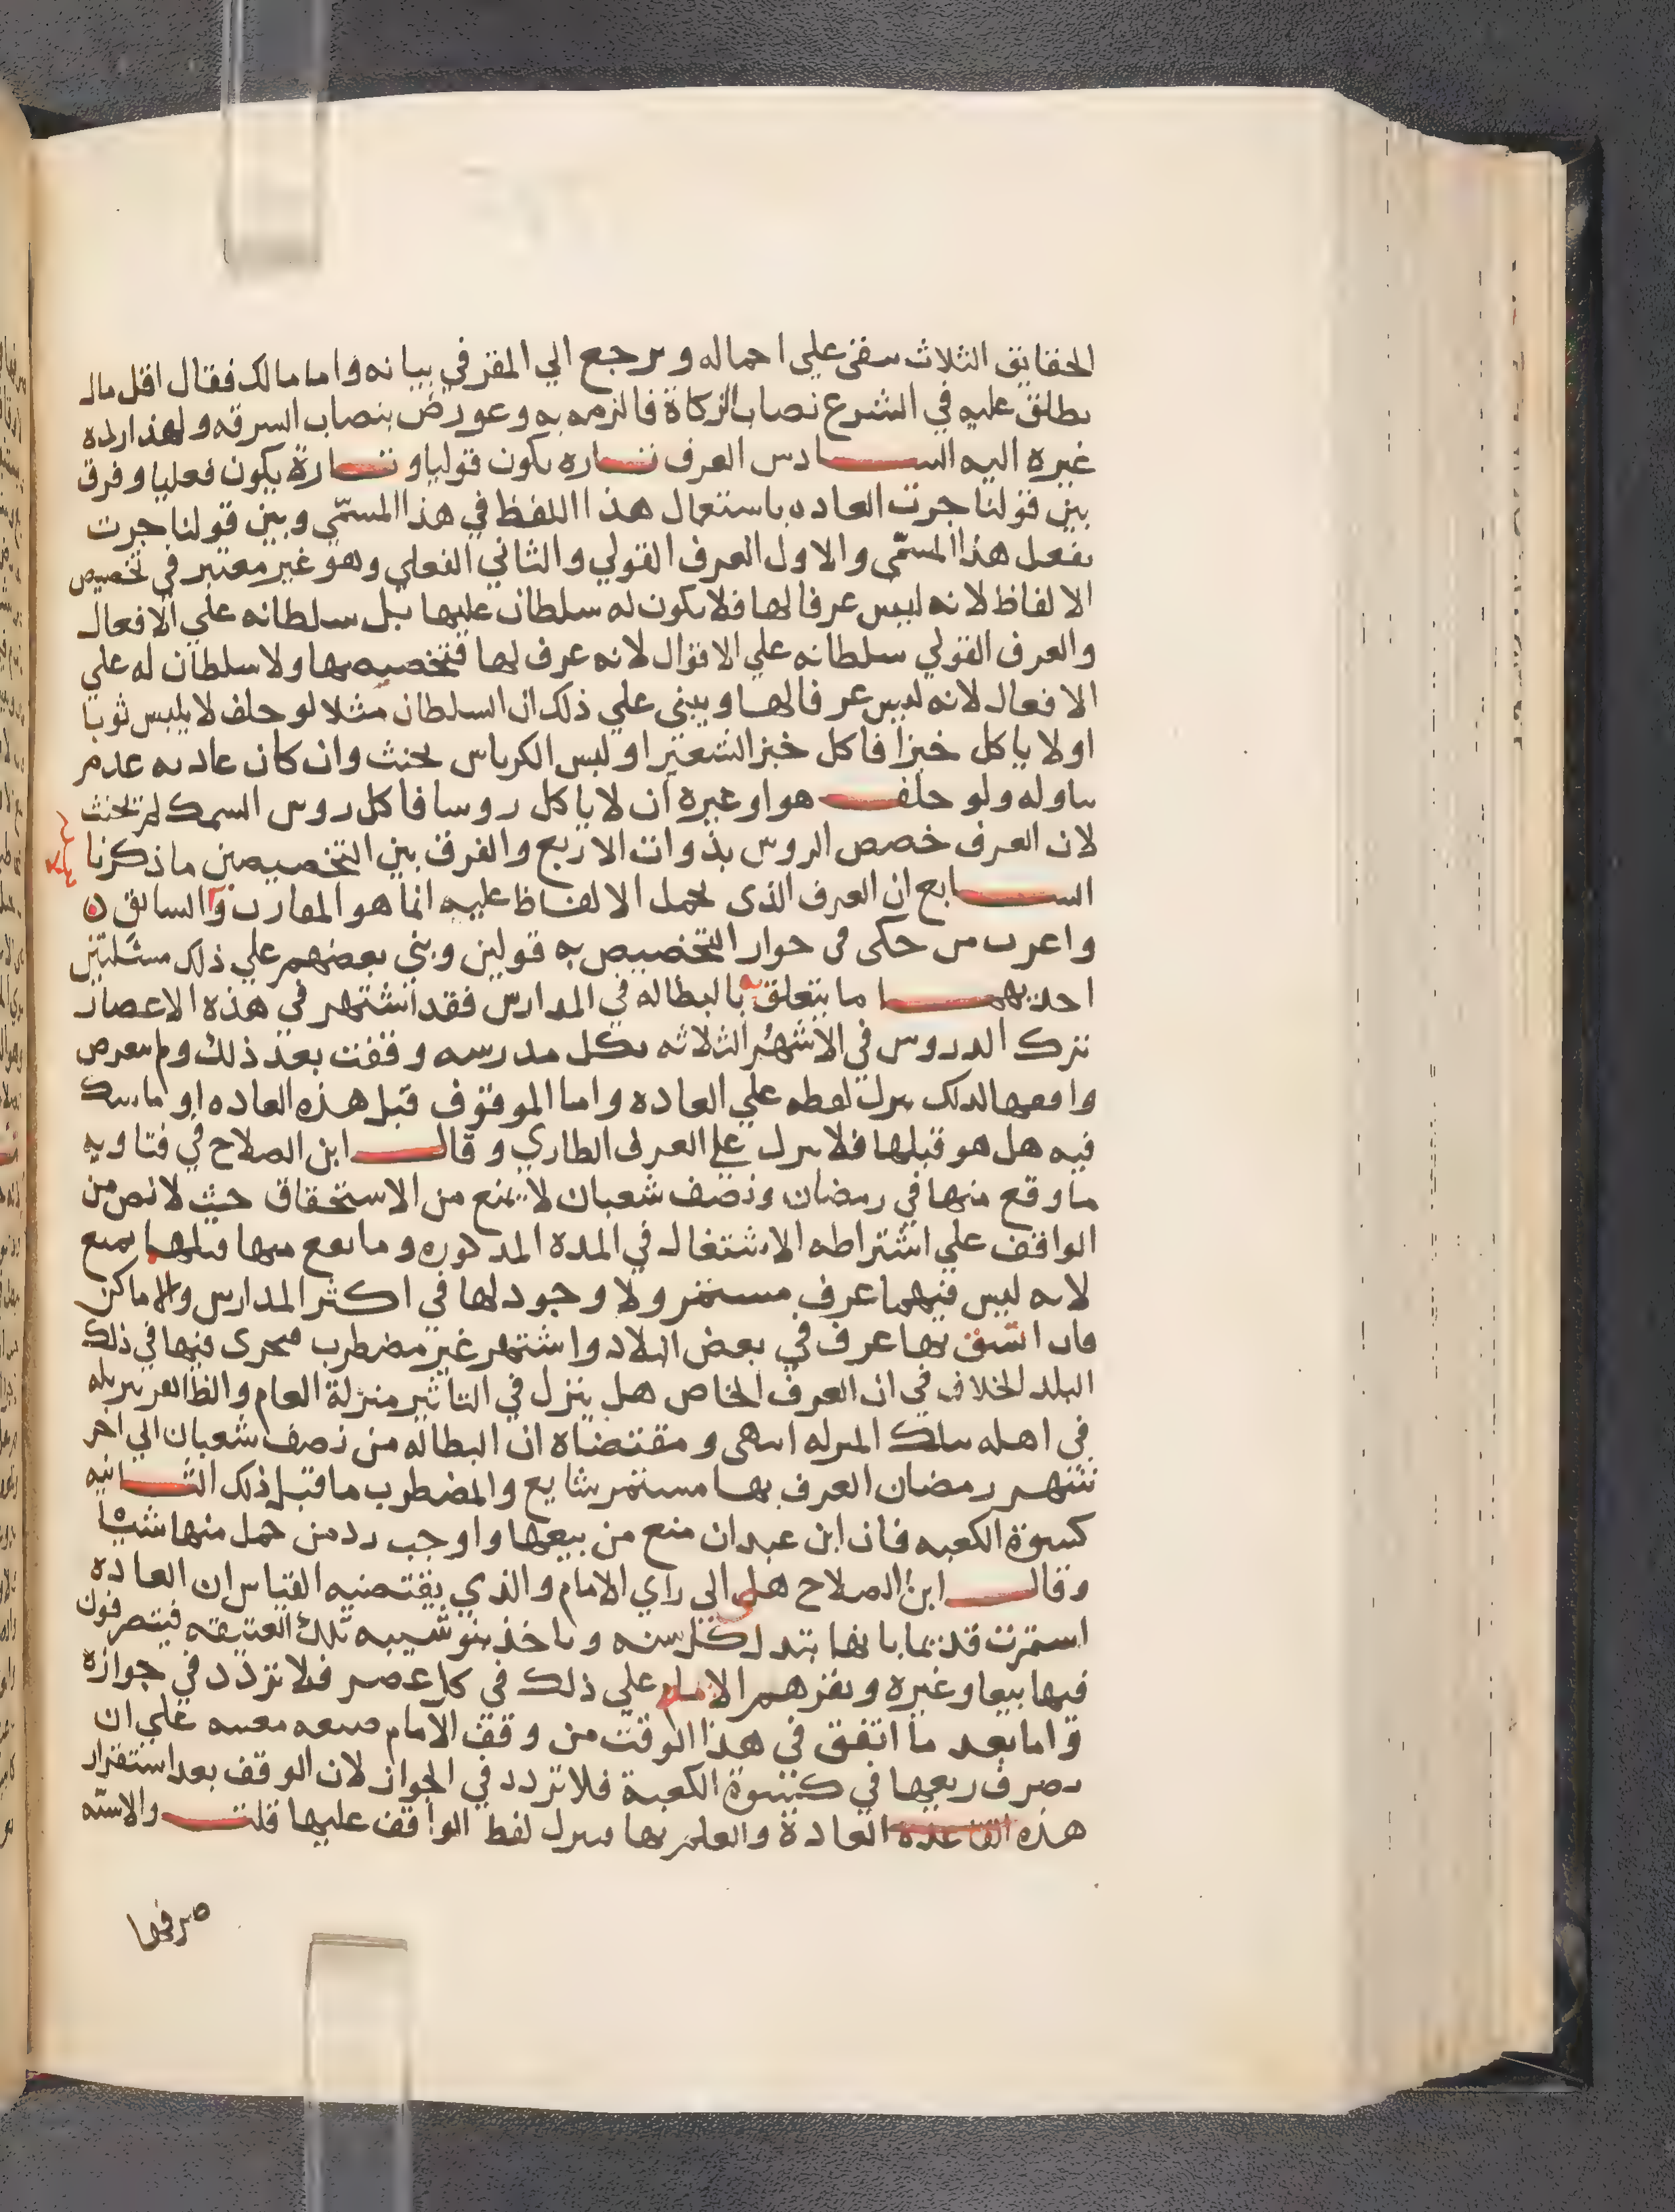 الحقايق الثلاث سقى على احماله ويرجع الي المقر في بيانه واما مالك فقال اقل مال
يطلق عليه في الشرع نصاب الزكاة فالزمه به وعورض بنصاب السرقه ولهذا رده
غيره اليه الســـادس العرف تـــاره يكون قوليا وتـــارة يكون فعليا وفرق
بين قولنا جرت العاده باستعمال هذا اللفظ في هذا المسمّى وبين قولنا جرت
بفعل هذا المسمّى والاول العرف القولي والثاني الفعلي وهو غير معتبر في تخصيص
الالفاظ لانه ليس عرفا لها فلا يكون له سلطان عليها بل سلطانه علي الافعال
والعرف القولي سلطانه علي الاقوال لانه عرف لها فتخصيصه بها ولا سلطان له علي
الافعال لانه ليس عرفا لها ويبنى علي ذلك ان السلطان مثلا لو حلف لا يلبس ثوبا
اولا ياكل خبزا فاكل خبز الشعير او لبس الكرباس يحنث وان كان عادته عدم
تناوله ولو حلفـــ هو او غيره ان لا ياكل روسا فاكل روس السمك لم يحنث
لان العرف خصص الروس بذوات الاربع والفرق بين التخصيصين ما ذكرنا
الســـابع ان العرف الذى يحمل الالفاظ عليه انما هو المقارن والسابق
واغرب من حكى في جواز التخصيص به قولين وبني بعضهم علي ذلك مسئلتين
احديهمـــا ما يتعلق بالبطاله في المدارس فقد اشتهر في هذه الاعصار
ترك الدروس في الاشهر الثلاثه فكل مدرسه وقفت بعد ذلك ولم يتعرض
واقفها لذلك ينزل لفظه علي العاده واما الموقوف قبل هذه العاده او ما يشك
فيه هل هو قبلها فلا ينزل على العرف الطاري وقالـــ ابن الصلاح في فتاويه
ما وقع منها في رمضان ونصف شعبان لا يمنع من الاستحقاق حيث لا نص من
الواقف علي اشتراطه الاشتغال في المدة المذكوره وما يقع منها قبلهما يمنع
لانه ليس فيهما عرف مستمر ولا وجود لها في اكثر المدارس والاماكن
فان اتفق بها عرف في بعض البلاد واشتهر غير مضطرب فيجرى فيها في ذلك
البلد الخلاف في ان العرف الخاص هل ينزل في التاثير منزلة العام والظاهر تنزيله
في اهله بتلك المنزله انتهى ومقتضاه ان البطاله من نصف شعبان الي اخر
شهر رمضان العرف بها مستمر شايع والمضطرب ما قبل ذلك الثـــانيه
كسوة الكعبه فان ابن عبدان منع من بيعها واوجب رد من حمل منها شيئا
وقالـــ ابن الصلاح هي الى راي الامام والذي يقتضيه القياس ان العاده
استمرت قديما بانها تبدل كل سنه وياخذ بنو شيبه تلك العتيقه فيتصرفون
فيها بيعا وغيره ويقرهم الامام علي ذلك في كل عصر فلا تردد في جوازه
واما بعد ما اتفق في هذا الوقت من وقف الامام ضيعه معينه علي ان
يصرف ريعها في كسوة الكعبة فلا تردد في الجواز لان الوقف بعد استقرار
هذه القاعدة العادة والعلم بها فينزل لفظ الواقف عليها قلتـــ والاسنه
صرفها